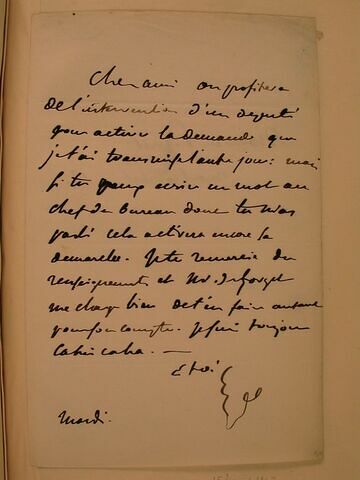 Cher ami on profitera
de l'intervention d'un député
pour activer la demande que
je t'ai transmise l'autre jour: mais
si tu peux écrire un mot au
chef de bureau dont tu m'as
parlé cela activera encore la
démarche. Je te remercie du
renseignement et Mr. deforget
me charge bien de t'en faire autant
pour son compte. je suis toujours
cahin caha. —
à toi
mardi.